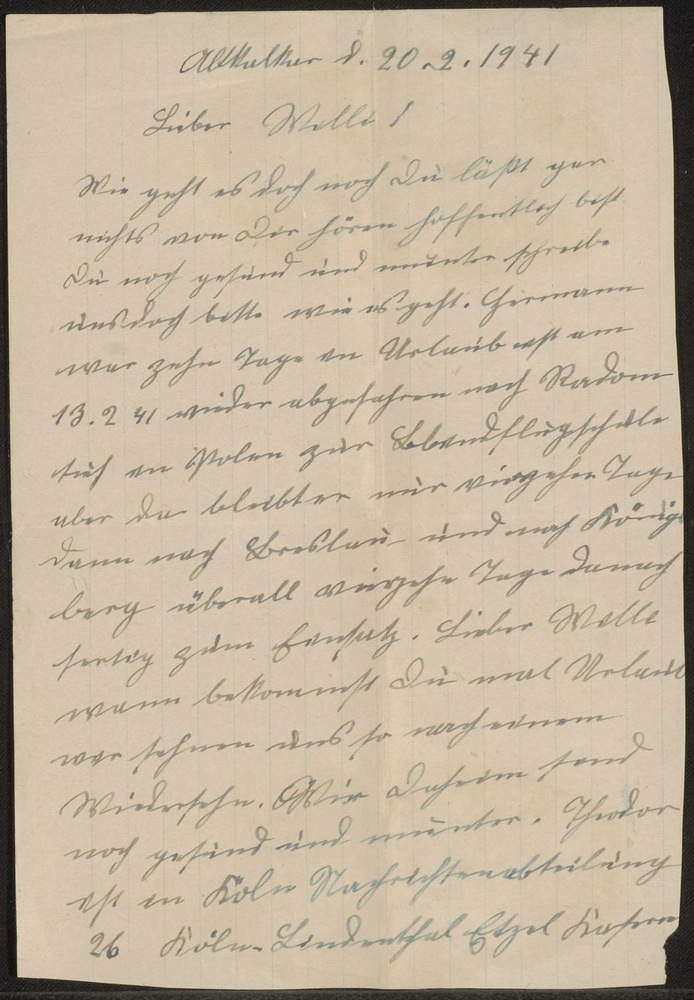 Altkalkar d. 20.2.1941
Lieber Willi!
Wie geht es doch noch Du läßt gar
nichts von Dir hören hoffentlich bist
Du noch gesund und munter schreibe
uns doch bitte wie es geht. Hermann
war zehn Tage in Urlaub ist am
13.2 41 wieder abgefahren nach Radom
tief in Polen zur Blindflugschule
aber da bleibt er nur vierzehn Tage
dann nach Breslau und nach Königs
berg überall vierzehn Tage danach
fertig zum Einsatz. Lieber Willi
wann bekommst Du mal Urlaub
wir sehnen uns so nach einem
Wiedersehn. Wir Daheim sind
noch gesund und munter. Theodor
ist in Köln Nachrichtenabteilung
26 Köln-Lindenthal Etzel Kaserne